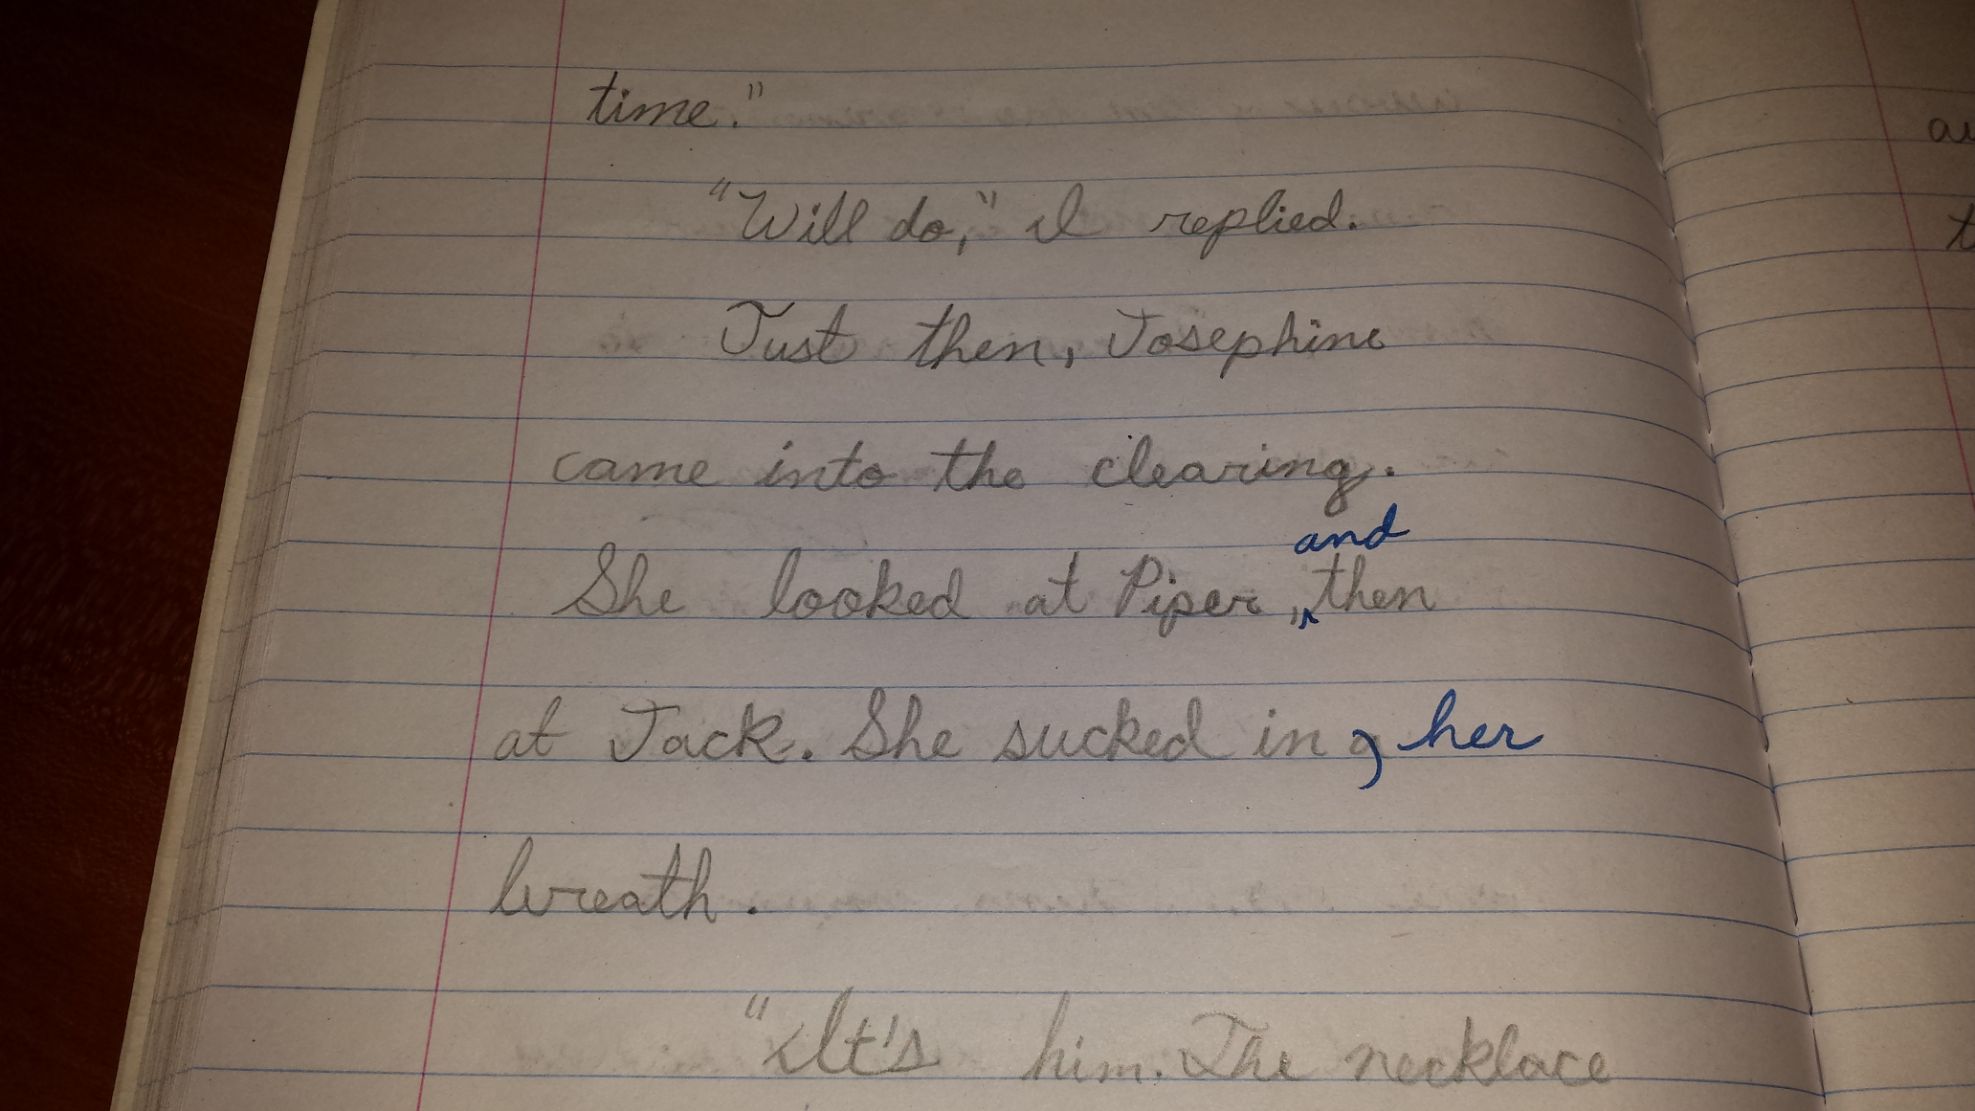 time."
"Will do," I replied.
Just then, Josephine
came into the clearing.
and
She looked at Piper, then
at Jack. She sucked in, her
breath.
"It's him. The necklace